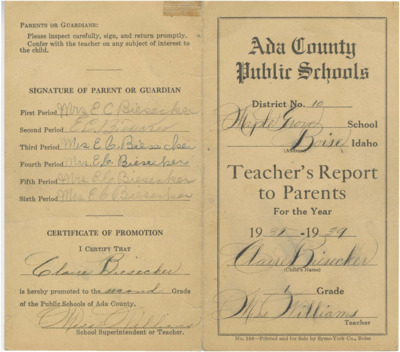 PARENTS OR GUARDIANS:
Please inspect carefully, sign, and return promptly.
Confer with the teacher on any subject of interest to
the child.
SIGNATURE OF PARENT OR GUARDIAN
First Period Mrs E C Biesecker
Second Period E C Biesecker
Third Period Mrs E C Biesecker
Fourth Period Mrs E C Biesecker
Fifth Period Mrs E C Biesecker
Sixth Period Mrs E C Biesecker
CERTIFICATE OF PROMOTION
I CERTIFY THAT
Claire Biesecker
is hereby promoted to the second Grade
of the Public Schools of Ada County.
Miss Williams
School Superintendent or Teacher.
Ada County
Public Schools
District No. 10
Maple Grove School
Boise Idaho
(Address)
Teacher's Report
to Parents
For the Year
1938-1939
Claire Biesecker
(Child's Name)
1 Grade
Miss Williams
Teacher
No. 160—Printed and for Sale by Syms-York Co., Boise